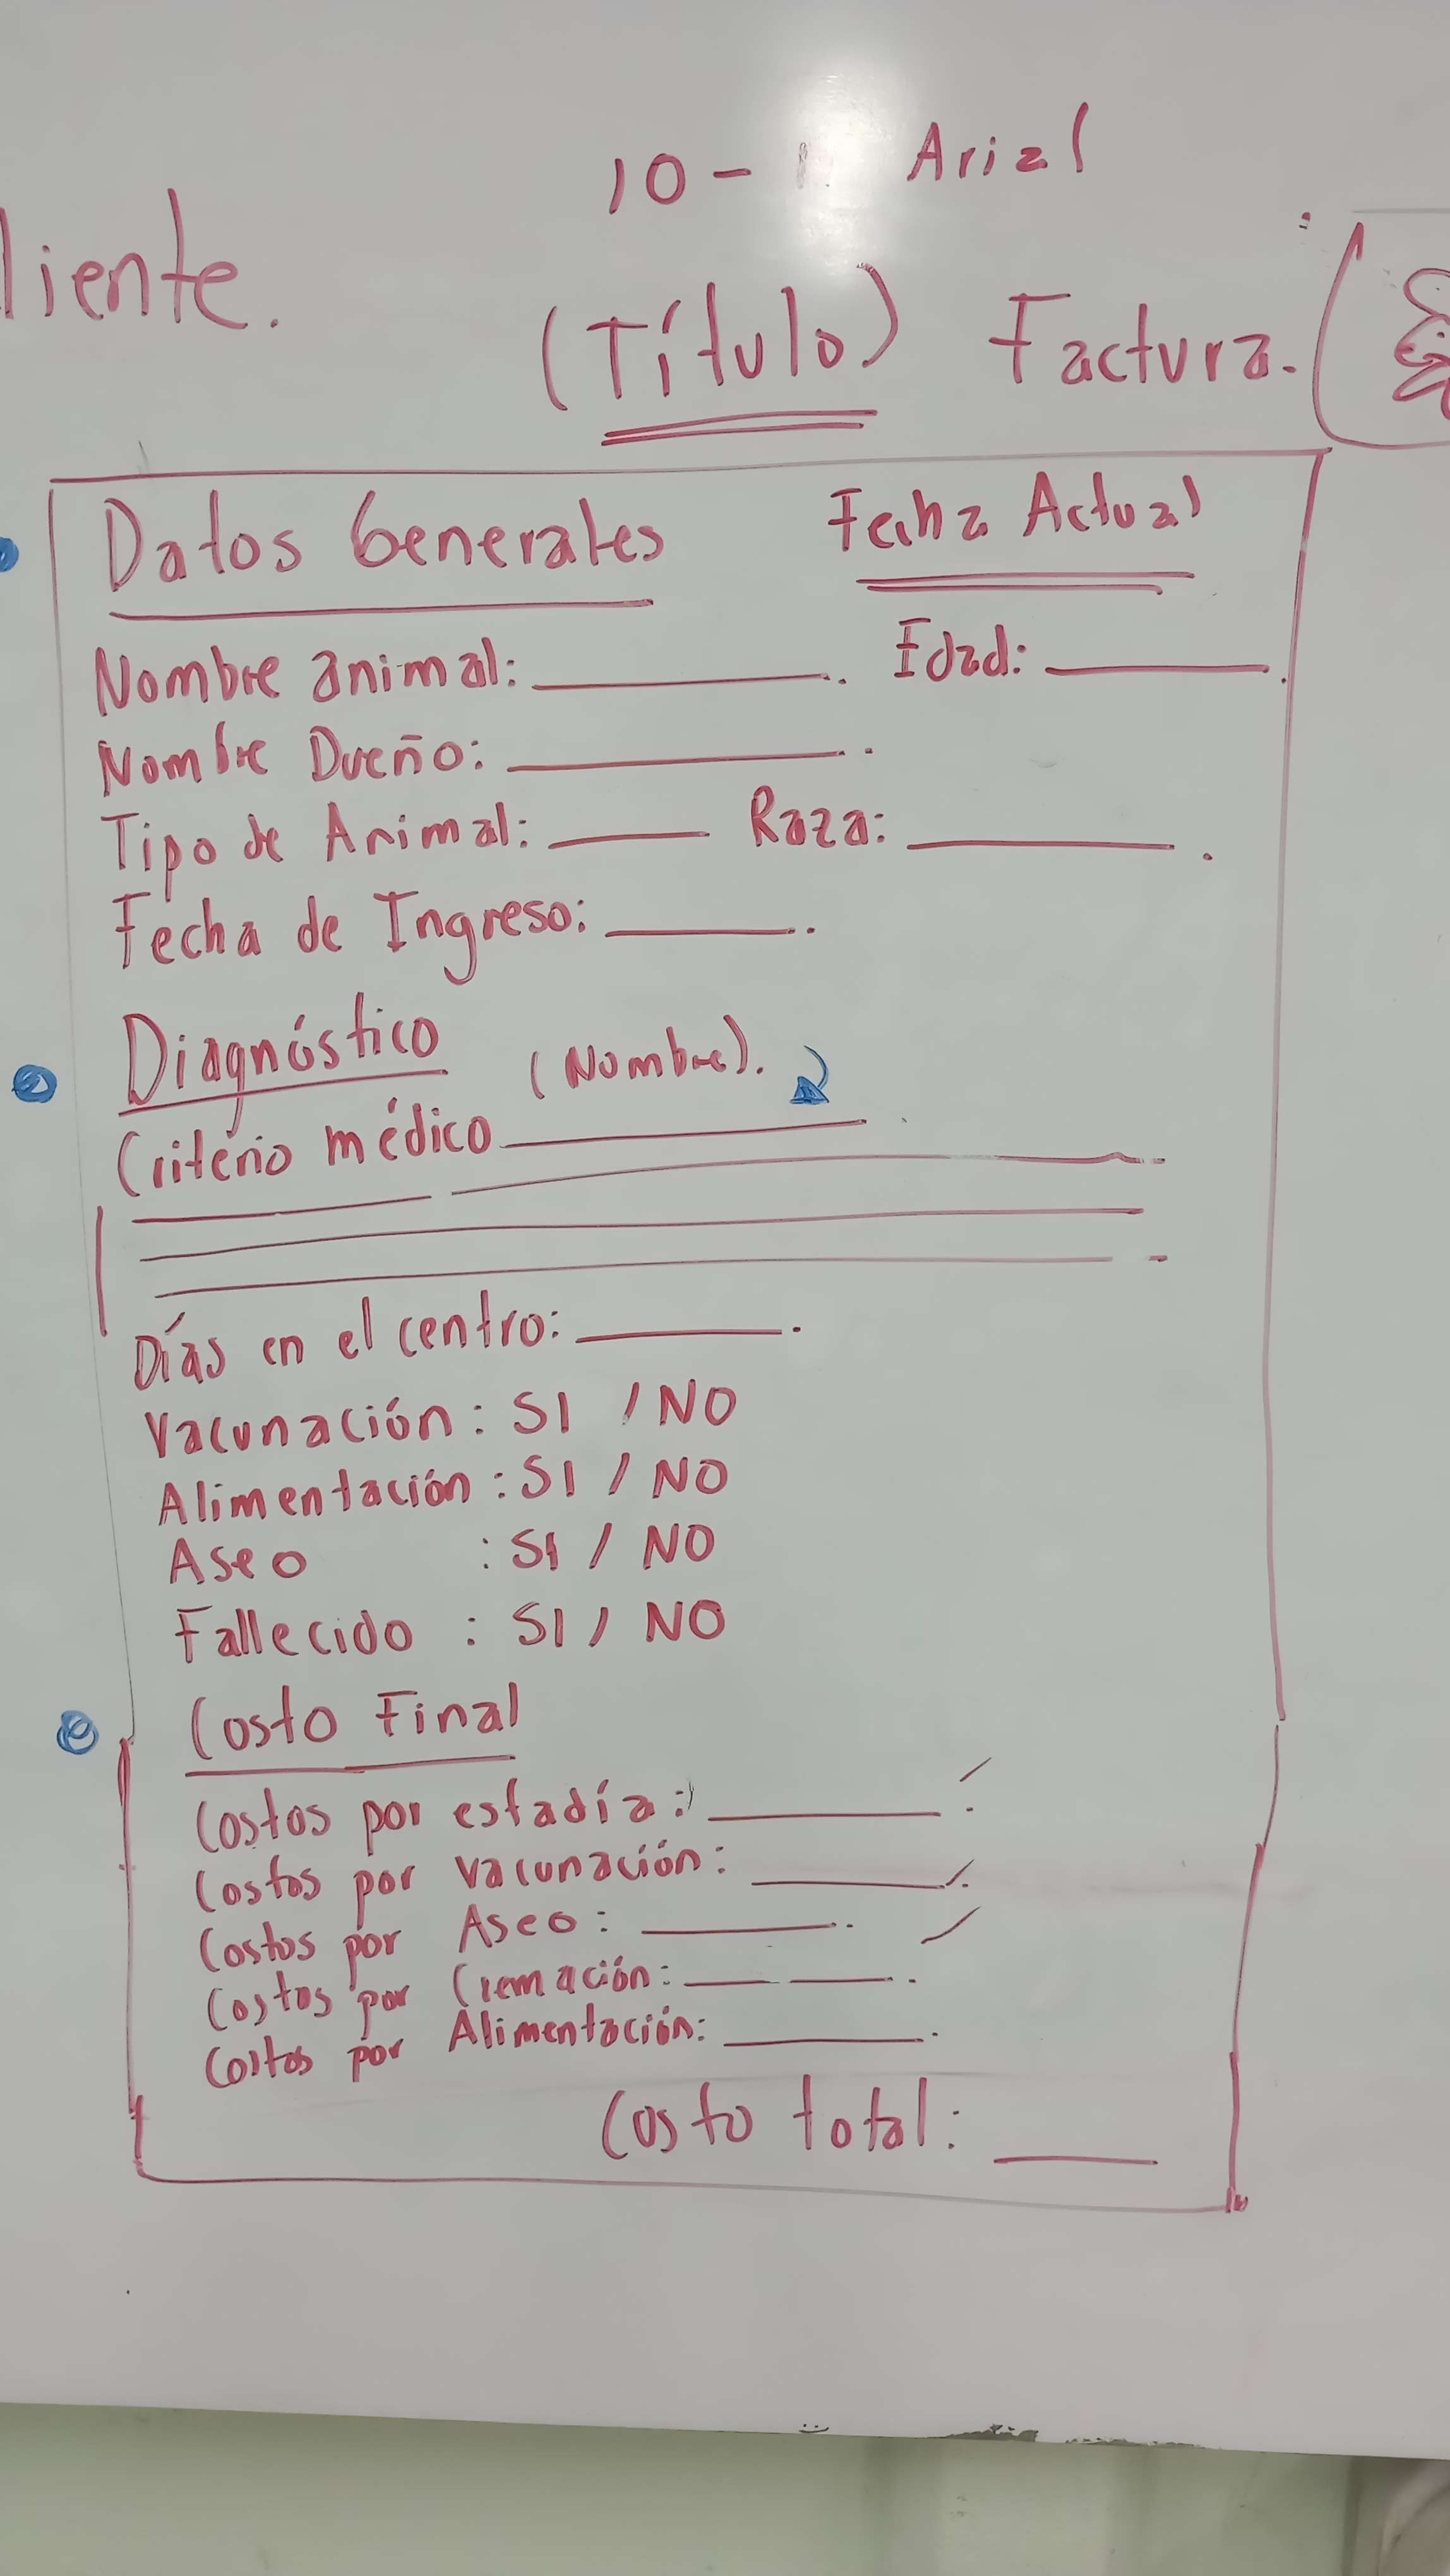 10 - Arial
liente.
(Título) Factura.
Datos Generales Fecha Actual
Nombre animal: ________. Edad: ________.
Nombre Dueño: ________.
Tipo de Animal: ____ Raza: ________.
Fecha de Ingreso: ______.
Diagnóstico (Nombre).
Criterio médico ________
Días en el centro: ______.
Vacunación : SI / NO
Alimentación : SI / NO
Aseo : SI / NO
Fallecido : SI / NO
Costo Final
Costos por estadía: ______.
Costos por vacunación: ______.
Costos por Aseo: ______.
Costos por Cremación: ______.
Costos por Alimentación: ______.
Costo total: ____